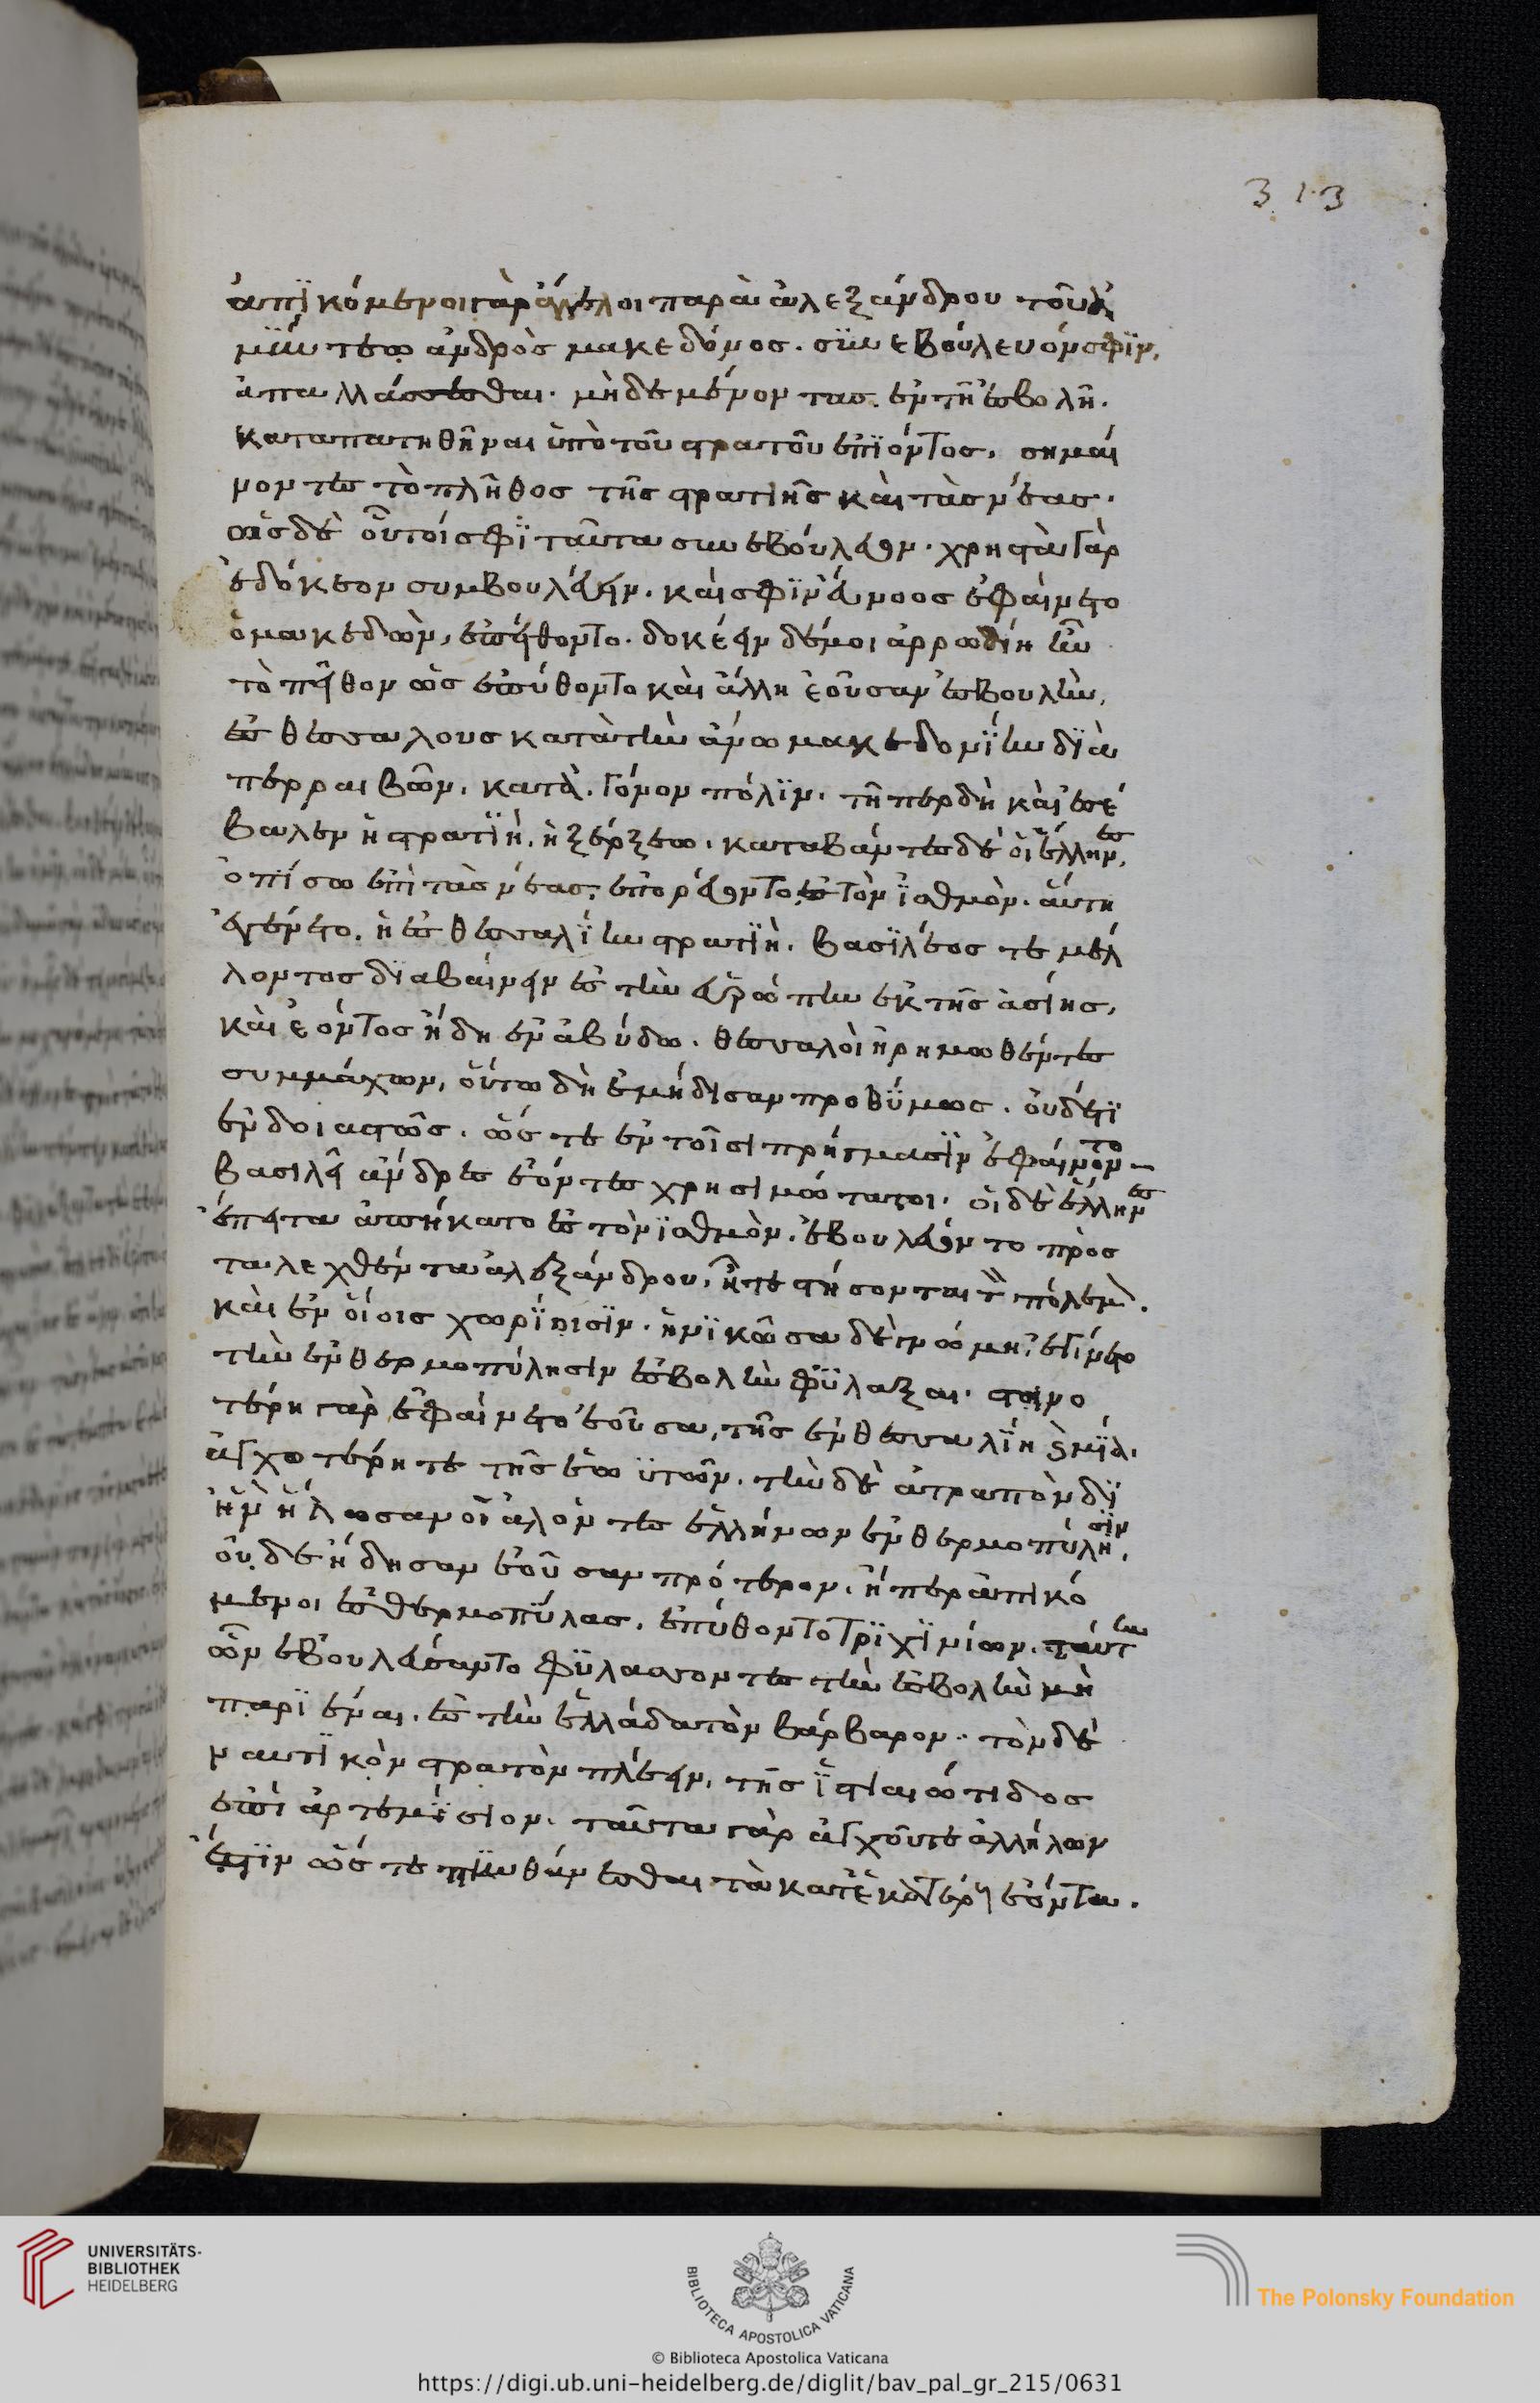 313
ἀπικόμενοι γὰρ ἄγγελοι παρὰ ἀλεξάνδρου τοῦ ἀ
μύντεω ἀνδρὸς μακεδόνος. συνεβούλευόν σφιν,
ἀπαλλάσσεσθαι. μὴδὲ μένοντας ἐν τῆ ἐσβολῆ.
καταπατηθῆναι ὑπὸ τοῦ στρατοῦ ἐπϊόντος. σημαί
νοντες τὸ πλῆθος τῆς στρατιῆς καὶ τὰς νέας.
ὡς δὲ οὗτοί σφϊ ταῦτα συνεβούλευον. χρηστὰ γὰρ
ἐδόκεον συμβουλεύειν. καὶ σφϊν εὔνοος ἐφαίνετο
ὁ μακεδὼν, ἐπείθοντο. δοκέειν δέ μοι ἀρρωδίη ἦν
τὸ πεῖθον ὡς ἐπύθοντο καὶ ἄλλη ἐοῦσαν ἐσβουλὴν,
ἐς θεσσαλους κατὰ τὴν ἄνω μακεδονΐην δϊὰ
περραιβῶν. κατὰ. γόνον πόλϊν. τῆ περ δὴ καὶ ἐσέ
βαλεν ἡ στρατϊὴ. ἡ ξέρξεω. καταβάντες δὲ οἱ ἕλληνες,
ὀπίσω ἐπὶ τὰς νέας. ἐπορεύοντο ἐς τὸν ἰσθμὸν. αὕτη
ἐγένετο. ἡ ἐς θεσσαλΐην στρατϊὴ. βασϊλέος τε μέλ
λοντος δϊαβαίνειν ἐς τὴν εὐρώπην ἐκ τῆς ἀσίης,
καὶ ἐόντος ἤδη ἐν ἀβύδω. θεσσαλοὶ ἠρημωθέντες
συμμάχων, οὕτω δὴ ἐμήδισαν προθύμως. οὐδέτϊ
ἐνδοιαστῶς. ὥς τε ἐν τοῖσι πρήγμασϊν ἐφαίνοντο
βασιλεῖ ἄνδρες ἐόντες χρησιμώτατοι. οἱ δὲ ἕλληνες
ἐπείτα ἀπήκατο ἐς τὸν ἰσθμὸν. ἐβουλεύοντο πρὸς
τα λεχθέντα ἀλεξάνδρου. ἧ τε στήσονται τὸν πόλεμον.
καὶ ἐν οἵοις χωρΐηισϊν. ἡ νϊκῶσα δὲ γνώμη. ἐγίνετο
τὴν ἐν θερμοπύλησιν ἐσβολὴν φϋλάξαι. στεινο
τέρη γὰρ ἐφαίνετο ἐοῦσα, τῆς ἐν θεσσαλΐη καὶ μϊὰ.
ἀγχοτέρη τε τῆς ἑωϋτῶν. τὴν δὲ ἀτραπὸν δϊ
ἣν ἥλωσαν οἱ ἁλόντες ἑλλήνων ἐν θερμοπύλησϊν,
οὐδὲ ἤδησαν ἐοῦσαν πρότερον. ἤπερ ἀπικό
μενοι ἐς θερμοπϋλας. ἐπύθοντο τρϊχϊνίων. ταύτην
ὦν ἐβουλεύσαντο φϋλάσσοντες τὴν ἐσβολὴν μὴ
παρϊέναι. ἐς τὴν ἑλλάδα τὸν βάρβαρον. τὸν δὲ
ναυτϊκὸν στρατὸν πλέειν. τῆς ἱστιαιώτιδος
ἐπὶ ἀρτεμΐσιον. ταῦτα γὰρ ἀγχοῦ τε ἀλλήλων
ἐστϊν ὥς τε πυνθάνεσθαι τὰ κατὲ ἑκατέρους ἐόντα.
UNIVERSITÄTS-
BIBLIOTHEK
HEIDELBERG
BIBLIOTECA APOSTOLICA VATICANA
The Polonsky Foundation
© Biblioteca Apostolica Vaticana
https://digi.ub.uni-heidelberg.de/diglit/bav_pal_gr_215/0631